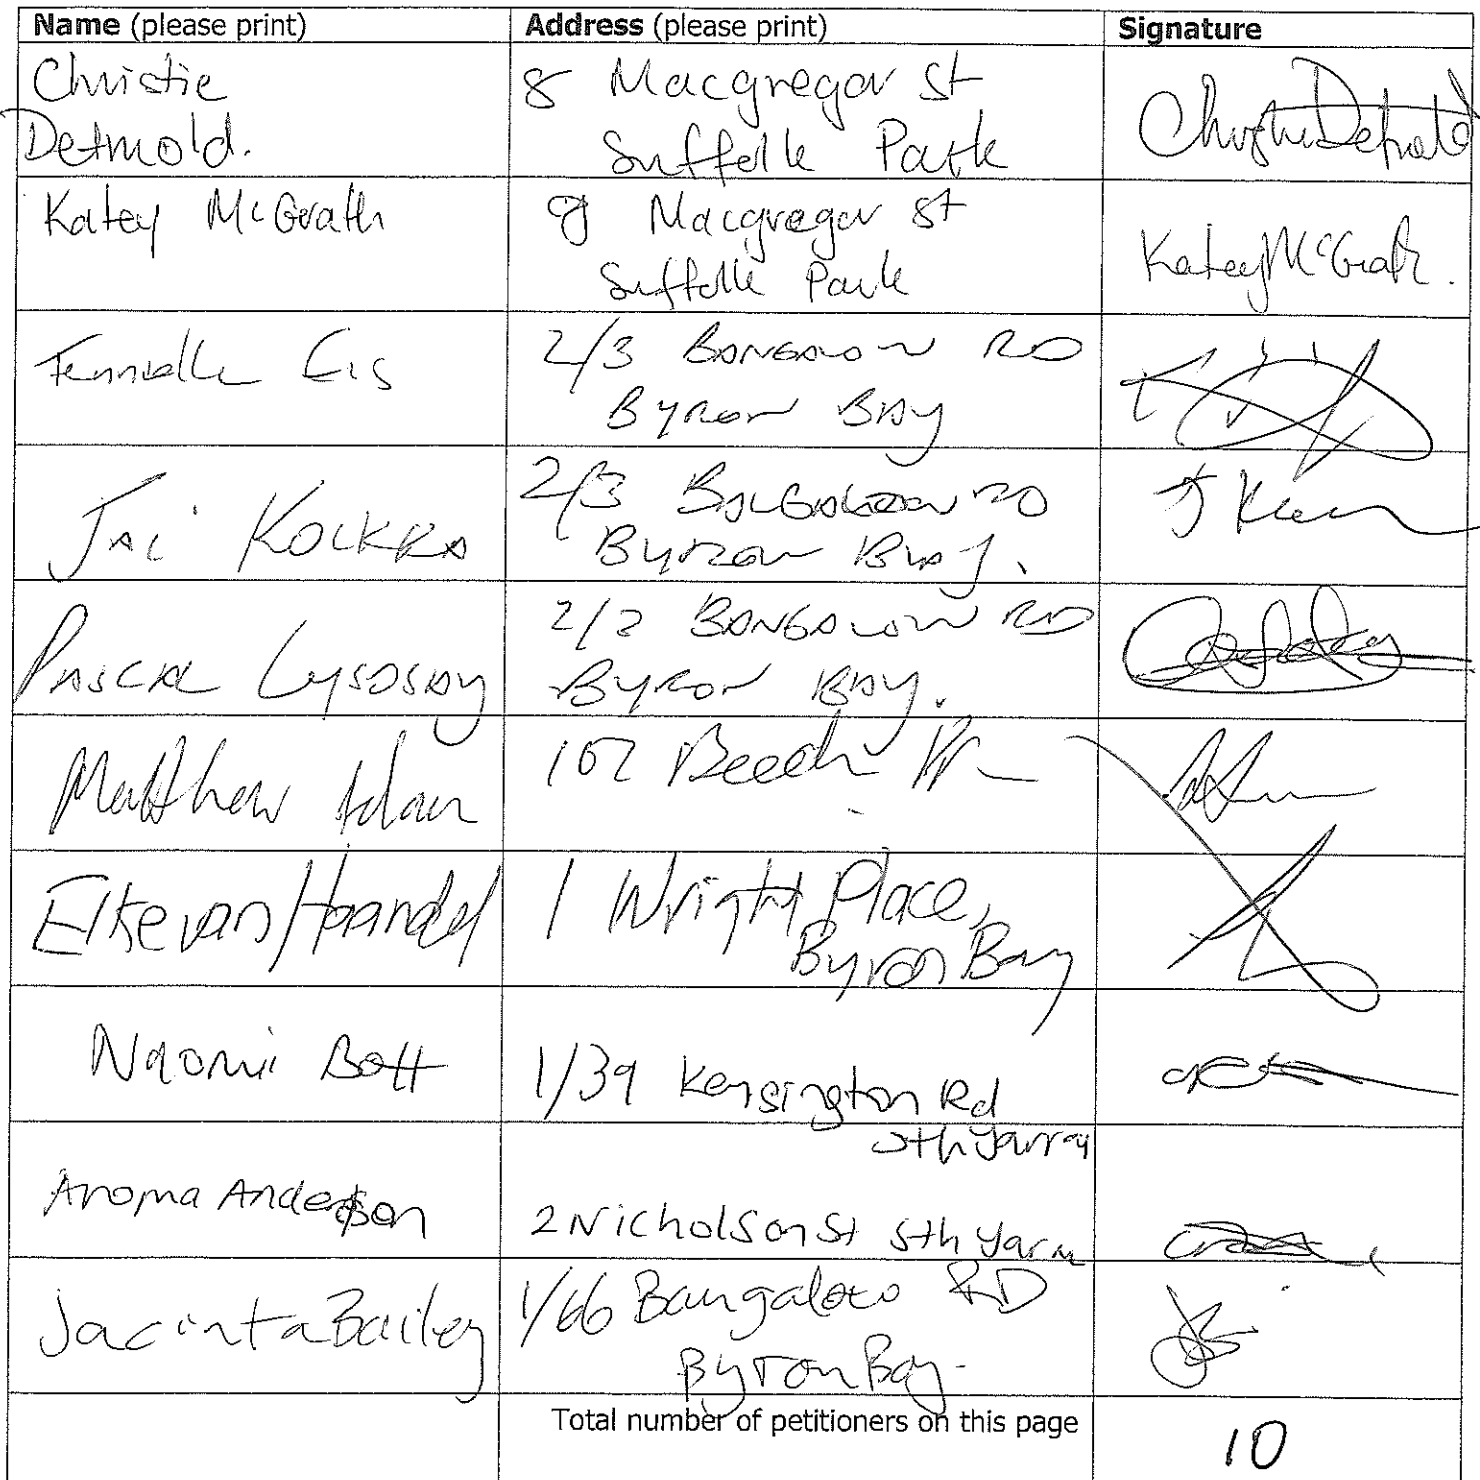 Name (please print) Address (please print) Signature
Christie 8 Macgregor St
Detmold. Suffolk Park
Katey McGrath 8 Macgregor St Katey McGrath.
Suffolk Park
2/3 BANGALOW RD
BYRON BAY
JAI 2/3 BANGALOW RD
BYRON BAY.
PASCAL 2/2 BANGALOW RD
BYRON BAY.
Matthew 102 Beech
Elke van Haandel 1 Wright Place,
Byron Bay
Naomi Bott 1/39 Kensington Rd
Sth Yarra
Aroma Anderson 2 Nicholson St Sth Yarra
Jacinta Bailey 1/66 Bangalow RD
Byron Bay-
Total number of petitioners on this page 10